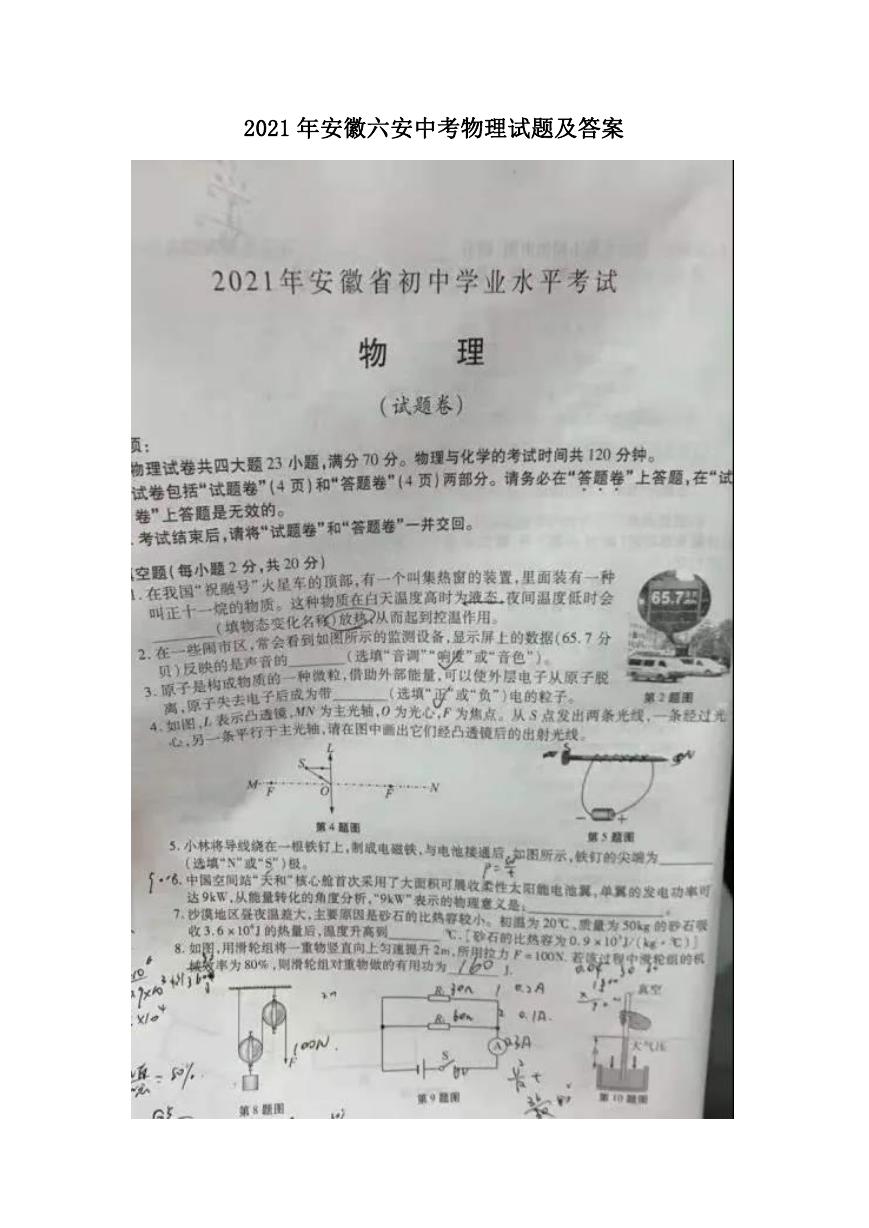 2021 年安徽六安中考物理试题及答案
2021年安徽省初中学业水平考试
物 理
(试题卷)
项:
物理试卷共四大题 23 小题,满分 70 分。物理与化学的考试时间共 120 分钟。
试卷包括“试题卷”(4 页)和“答题卷”(4 页)两部分。请务必在“答题卷”上答题,在“试
卷”上答题是无效的。
考试结束后,请将“试题卷”和“答题卷”一并交回。
空题(每小题 2 分,共 20 分)
1. 在我国“祝融号”火星车的顶部,有一个叫集热窗的装置,里面装有一种
叫正十一烷的物质。这种物质在白天温度高时为液态,夜间温度低时会
(填物态变化名称)放热,从而起到控温作用。
65.7
2. 在一些闹市区,常会看到如图所示的监测设备,显示屏上的数据(65.7 分
贝)反映的是声音的______(选填“音调”“响度”或“音色”)。
3. 原子是构成物质的一种微粒,借助外部能量,可以使外层电子从原子脱
离,原子失去电子后成为带______(选填“正”或“负”)电的粒子。
第 2 题图
4. 如图,L 表示凸透镜,MN 为主光轴,O 为光心,F 为焦点。从 S 点发出两条光线,一条经过光
心,另一条平行于主光轴,请在图中画出它们经凸透镜后的出射光线。
L
S
M F O F N
S N
- +
第 4 题图
第 5 题图
5. 小林将导线绕在一根铁钉上,制成电磁铁,与电池接通后,如图所示,铁钉的尖端为______
(选填“N”或“S”)极。
6. 中国空间站“天和”核心舱首次采用了大面积可展收柔性太阳能电池翼,单翼的发电功率可
达 9kW,从能量转化的角度分析,“9kW”表示的物理意义是:______。
7. 沙漠地区昼夜温差大,主要原因是砂石的比热容较小。初温为 20℃、质量为 50kg 的砂石吸
收 3.6×10⁶J 的热量后,温度升高到______℃。[砂石的比热容为 0.9×10³J/(kg·℃)]
8. 如图,用滑轮组将一重物竖直向上匀速提升 2m,所用拉力 F=100N。若该过程中滑轮组的机
械效率为 80%,则滑轮组对重物做的有用功为 160 J.
R₁ 30Ω 0.2A
R₂ 60Ω 0.1A
真空
100N
F
A 0.3A
大气压
S
6V
= 80%
第 8 题图
第 9 题图
第 10 题图